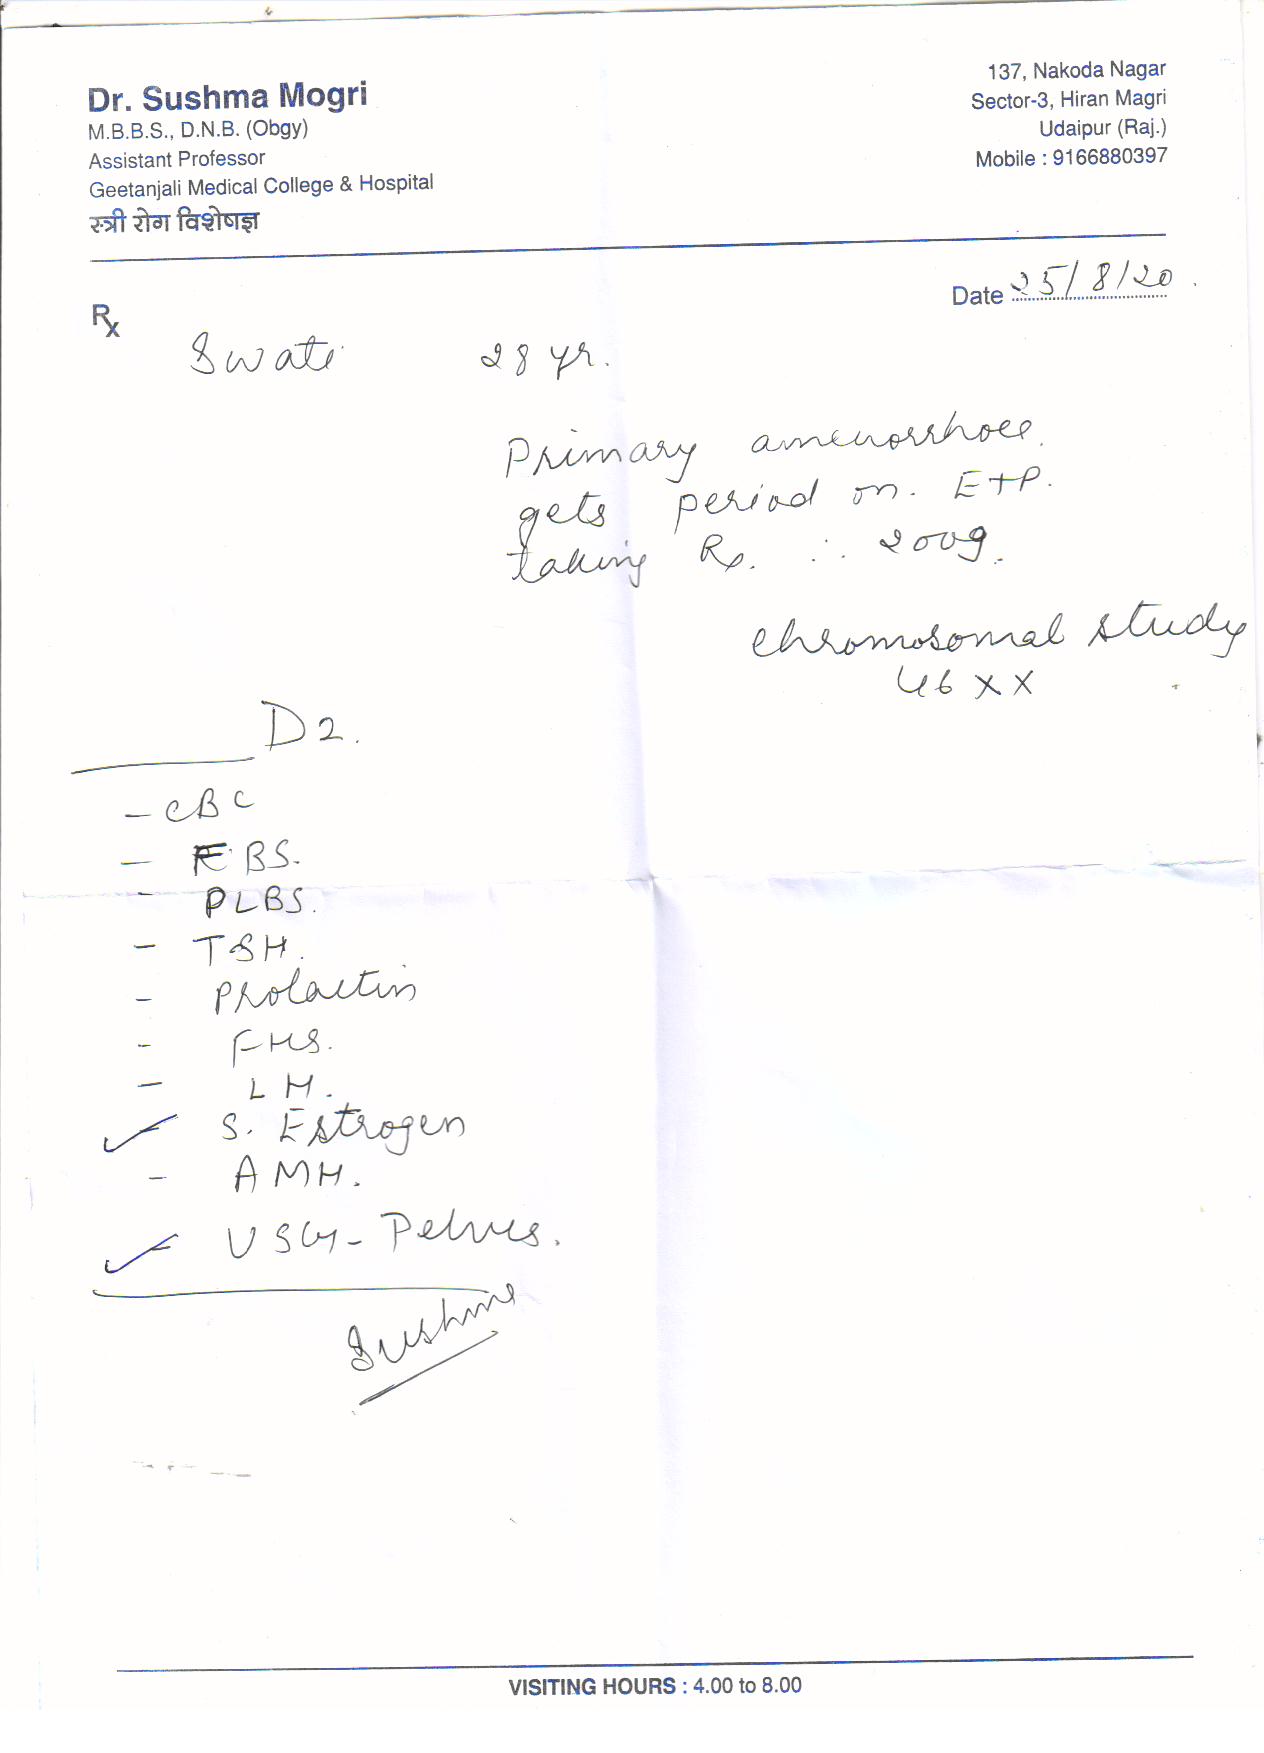 Dr. Sushma Mogri
M.B.B.S., D.N.B. (Obgy)
Assistant Professor
Geetanjali Medical College & Hospital
स्त्री रोग विशेषज्ञ
137, Nakoda Nagar
Sector-3, Hiran Magri
Udaipur (Raj.)
Mobile : 9166880397
Date 25/8/20
Rx
Swati 28 yr.
Primary amenorrhoea.
gets period on. E+P.
taking Rx. ∴ 2009.
Chromosomal study
46 XX
D2.
- CBC
- FBS.
- PLBS.
- TSH.
- Prolactin
- FHS.
- LH.
✓ S. Estrogen
- AMH.
✓ USG - Pelvis.
Sushma
VISITING HOURS : 4.00 to 8.00